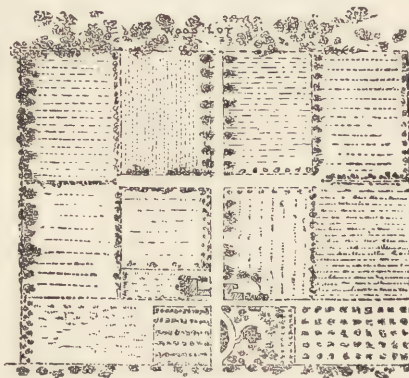 WOOD LOT